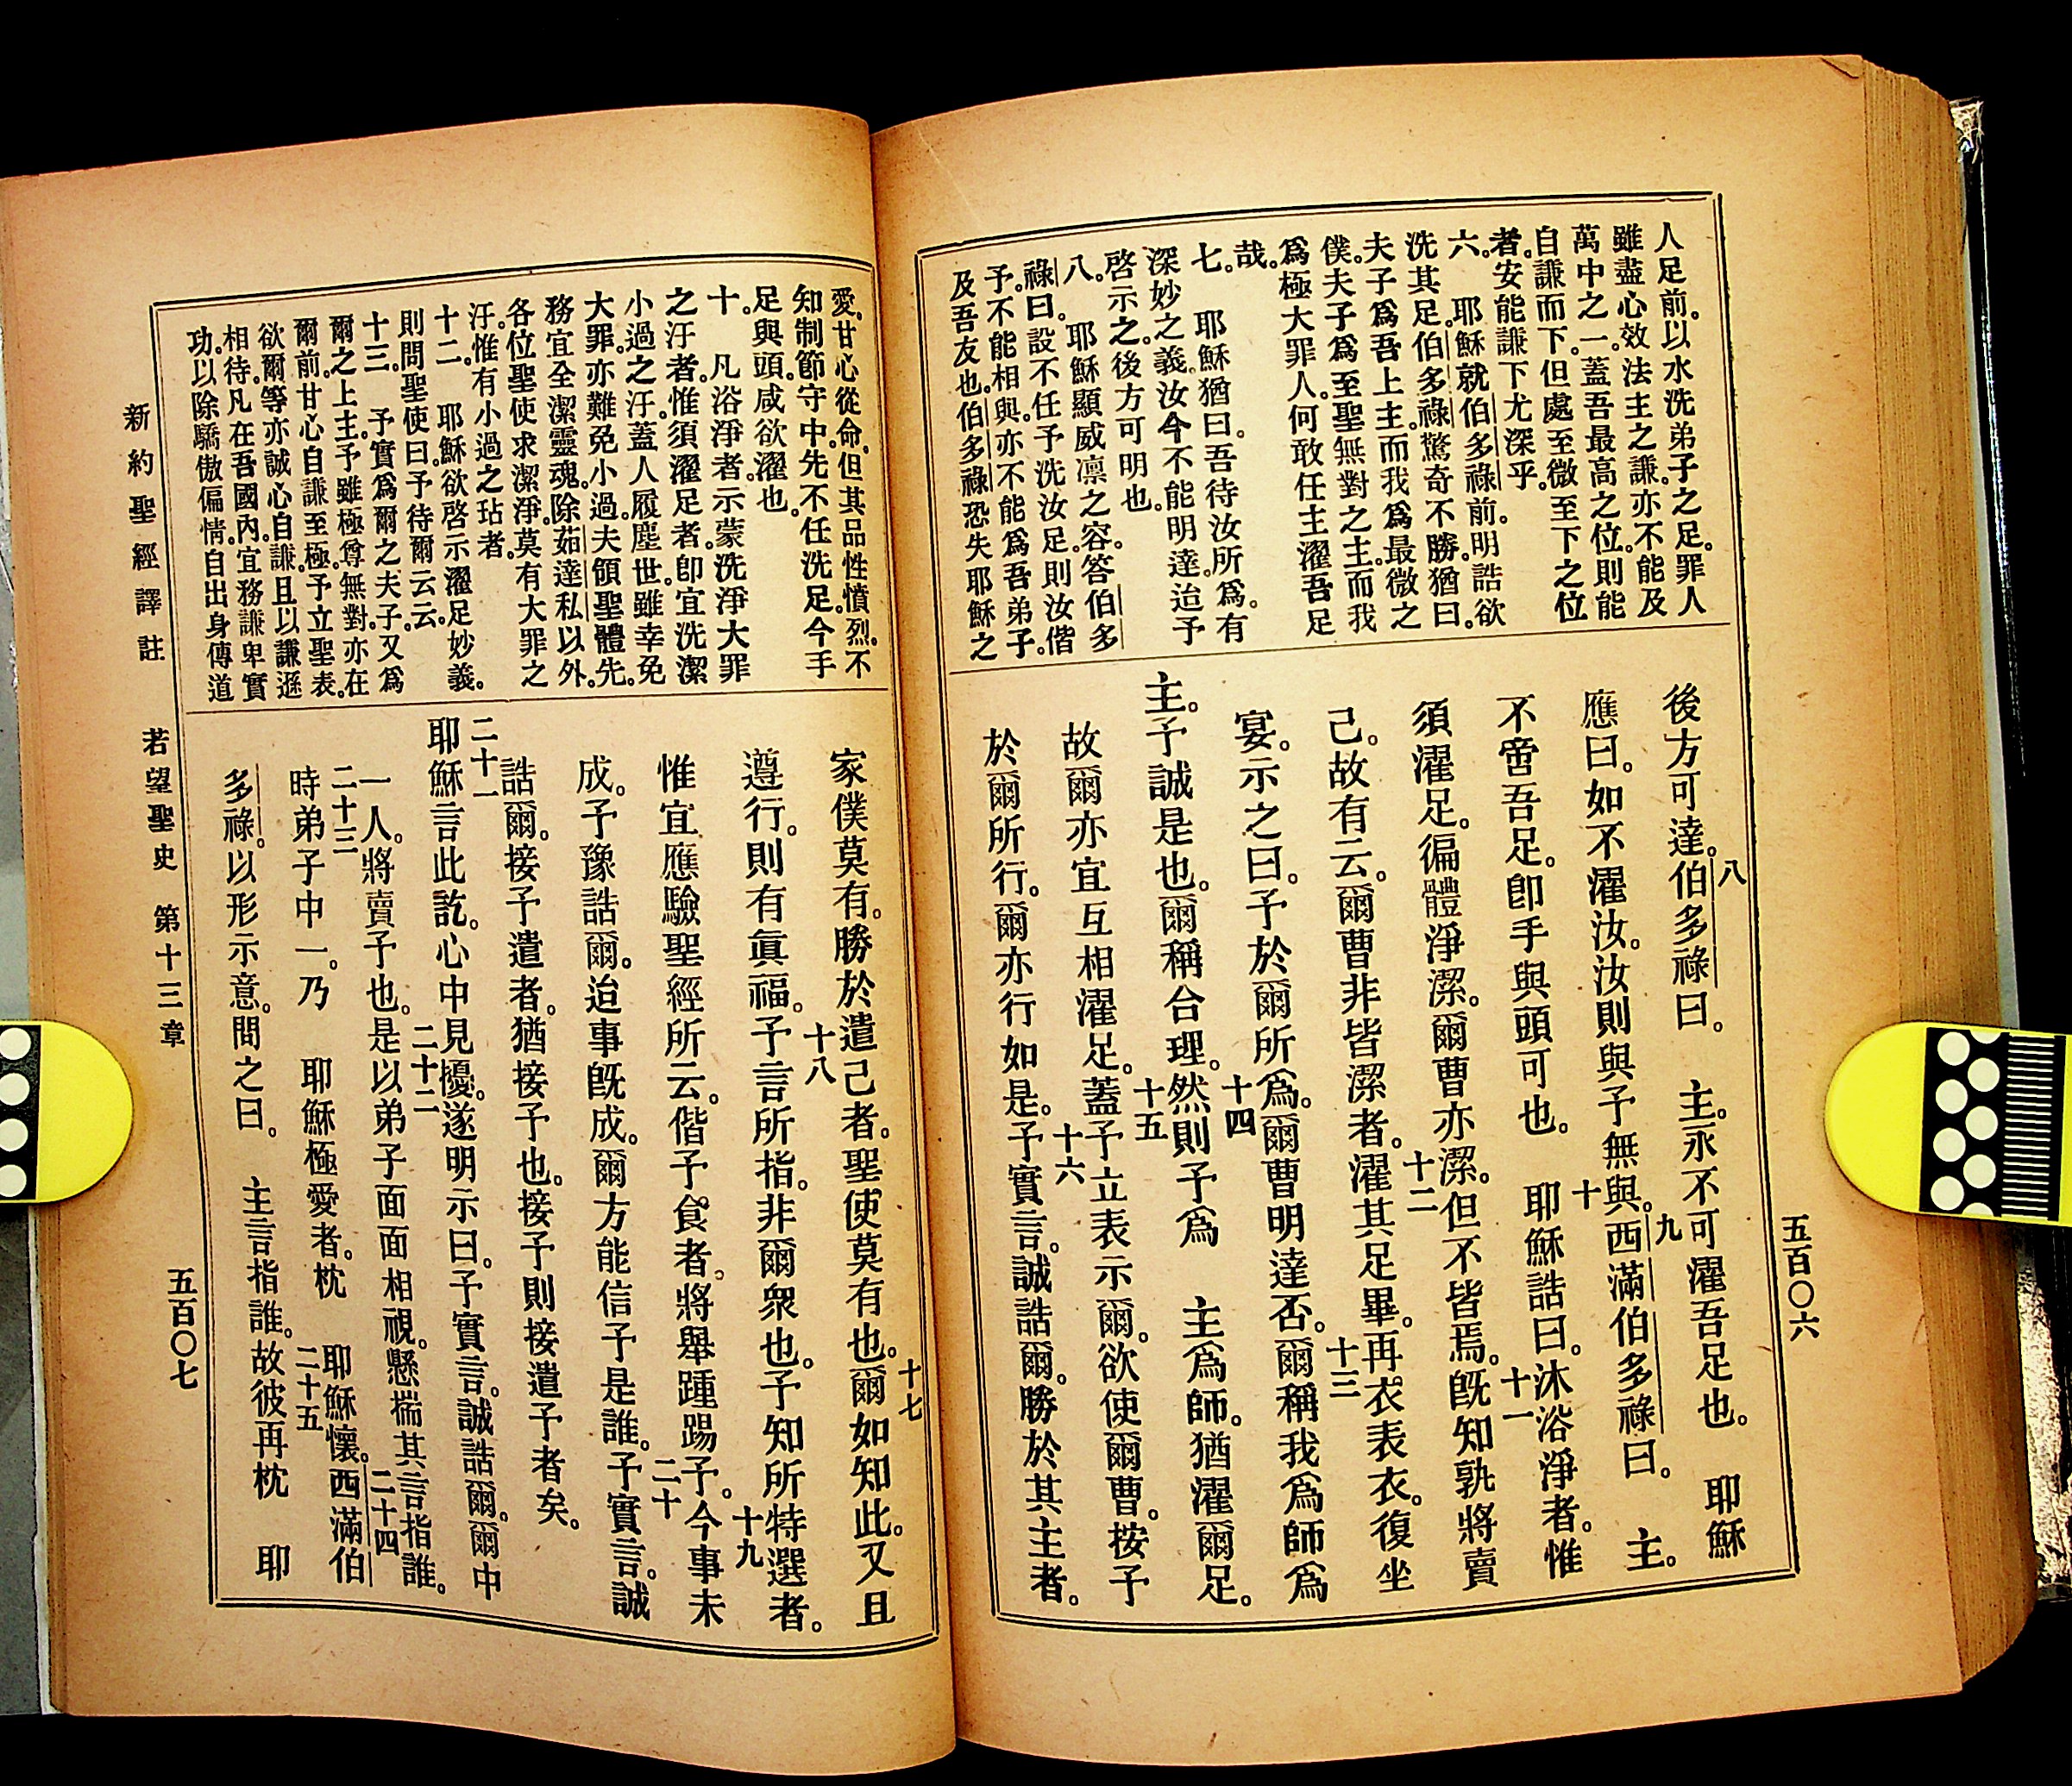 五百〇六
人足前。以水洗弟子之足。罪人
雖盡心效法主之謙。亦不能及
萬中之一。蓋吾最高之位。則能
自謙而下。但處至微至下之位
者。安能謙下尤深乎。
六。耶穌就伯多祿前。明誥欲
洗其足。伯多祿驚奇不勝。猶曰。
夫子爲吾上主。而我爲最微之
僕。夫子爲至聖無對之主。而我
爲極大罪人。何敢任主濯吾足
哉。
七。耶穌猶曰。吾待汝所爲。有
深妙之義。汝今不能明達。迨予
啓示之。後方可明也。
八。耶穌顯威凛之容。答伯多
祿曰。設不任予洗汝足。則汝偕
予。不能相與。亦不能爲吾弟子。
及吾友也。伯多祿恐失耶穌之
後方可達。八伯多祿曰。主。永不可濯吾足也。耶穌
應曰。如不濯汝。汝則與予無與。九西滿伯多祿曰。主。
不啻吾足。卽手與頭可也。十耶穌誥曰。沐浴淨者。惟
須濯足。徧體淨潔。爾曹亦潔。但不皆焉。十一旣知孰將賣
己。故有云。爾曹非皆潔者。十二濯其足畢。再衣表衣。復坐
宴。示之曰。予於爾所爲。爾曹明達否。十三爾稱我爲師爲
主。予誠是也。爾稱合理。十四然則予爲主爲師。猶濯爾足。
故爾亦宜互相濯足。十五蓋予立表示爾。欲使爾曹。按予
於爾所行。爾亦行如是。十六予實言。誠誥爾。勝於其主者。
愛。甘心從命。但其品性憤烈。不
知制節守中。先不任洗足。今手
足與頭。咸欲濯也。
十。凡浴淨者。示蒙洗淨大罪
之汙者。惟須濯足者。卽宜洗潔
小過之汙。蓋人履塵世。雖幸免
大罪。亦難免小過。夫領聖體先。
務宜全潔靈魂。除茹達私以外。
各位聖使求潔淨。莫有大罪之
汙。惟有小過之玷者。
十二。耶穌欲啓示濯足妙義。
則問聖使曰。予待爾云云。
十三。予實爲爾之夫子。又爲
爾之上主。予雖極尊無對。亦在
爾前。甘心自謙至極。予立聖表。
欲爾等亦誠心自謙。且以謙遜
相待。凡在吾國內。宜務謙卑實
功。以除驕傲偏情。自出身傳道
家僕莫有。勝於遣己者。聖使莫有也。十七爾如知此。又且
遵行。則有眞福。十八予言所指。非爾衆也。予知所特選者。
惟宜應驗聖經所云。偕予食者。將舉踵踢予。十九今事未
成。予豫誥爾。迨事旣成。爾方能信予是誰。二十予實言。誠
誥爾。接予遣者。猶接予也。接予則接遣予者矣。
二十一耶穌言此訖。心中見擾。遂明示曰。予實言。誠誥爾。爾中
一人。將賣予也。二十二是以弟子面面相視。懸揣其言指誰。
二十三時弟子中一。乃耶穌極愛者。枕耶穌懷。二十四西滿伯
多祿。以形示意。間之曰。主言指誰。二十五故彼再枕耶
新約聖經譯註 若望聖史 第十三章
五百〇七